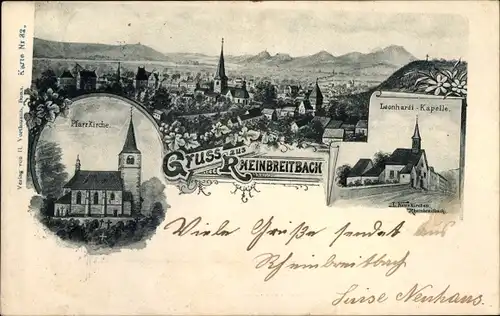 Verlag von H. Vorthmann, Bonn. Karte Nr. 32.
Pfarrkirche.
Leonhardi - Kapelle.
Gruss aus
RHEINBREITBACH
Rheinbreitbach.
Viele Grüße sendet aus
Rheinbreitbach
Luise Neuhaus